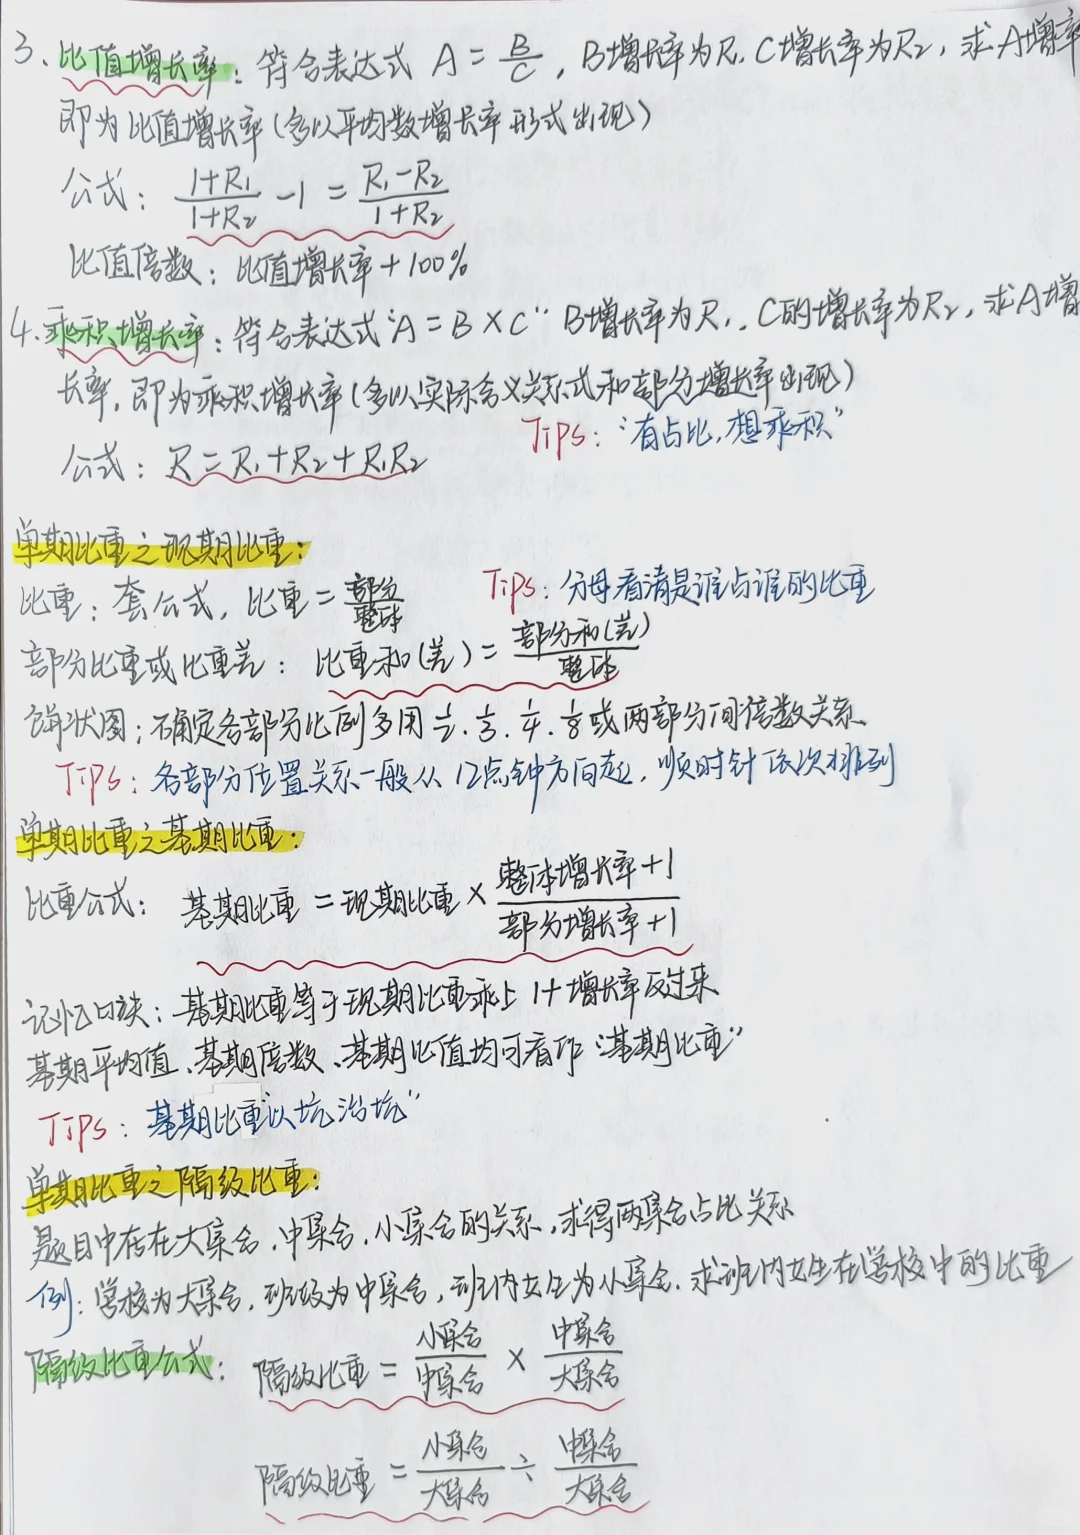 3、比值增长率：符合表达式 A = B/C，B增长率为R₁，C增长率为R₂，求A增率
即为比值增长率(多以平均数增长率形式出现)
公式：(1+R₁)/(1+R₂) -1 = (R₁-R₂)/(1+R₂)
比值倍数：比值增长率+100%
4.乘积增长率：符合表达式"A = B×C" B增长率为R₁，C的增长率为R₂，求A增
长率，即为乘积增长率(多以实际含义关系式和部分增长率出现)
Tips："有占比，想乘积"
公式：R = R₁+R₂+R₁R₂
单期比重之现期比重：
比重：套公式，比重 = 部分/整体 Tips：分母看清是谁占谁的比重
部分比重或比重差：比重和(差) = 部分和(差)/整体
饼状图：不确定各部分比例多用 1/2、1/3、1/4、1/8 或两部分间倍数关系
Tips：各部分位置关系一般从12点钟方向起，顺时针依次排列
单期比重之基期比重：
比重公式：基期比重 = 现期比重 × (整体增长率+1)/(部分增长率+1)
记忆口诀：基期比重等于现期比重乘上 1+增长率反过来
基期平均值、基期倍数、基期比值均可看作"基期比重"
Tips：基期比重"以坑治坑"
单期比重之隔级比重：
题目中存在大集合，中集合，小集合的关系，求得两集合占比关系
例：学校为大集合，班级为中集合，班内女生为小集合，求班内女生在学校中的比重
隔级比重公式：隔级比重 = 小集合/中集合 × 中集合/大集合
隔级比重 = 小集合/大集合 ÷ 中集合/大集合